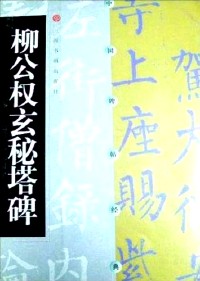 柳公权玄秘塔碑
中国碑帖经典
駕大行
寺上座賜紫
左街僧録内